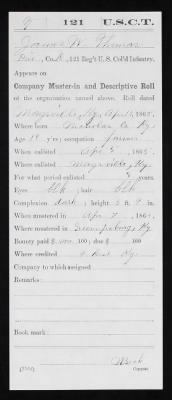 121 U.S.C.T.
James W. Thomas
Co. K, 121 Reg't U. S. Col'd Infantry.
Appears on
Company Muster-in and Descriptive Roll
of the organization named above. Roll dated
Maysville, Ky, April, 1865.
Where born Nicholas Co. Ky.
Age 18 y'rs; occupation Farmer
When enlisted Apr. 5, 1865.
Where enlisted Maysville, Ky.
For what period enlisted 3 years.
Eyes blk; hair blk
Complexion dark; height 5 ft. 4 in.
When mustered in Apr. 7, 1865.
Where mustered in Greenupsburg, Ky
Bounty paid $ 100; due $ 100
Where credited
Company to which assigned
Remarks:
Book mark:
Copyist.